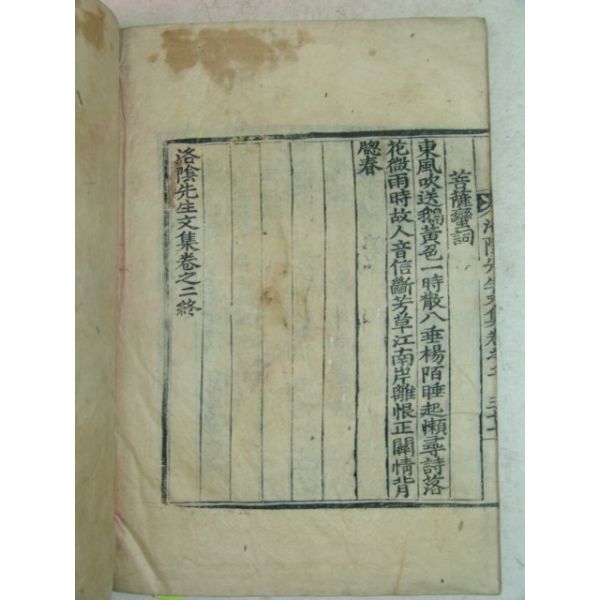 洛陰先生文集卷之二
菩薩蠻詞
東風吹送鵝黃色一時散入垂楊陌睡起懶尋詩落
花微雨時故人音信斷芳草江南岸離恨正關情背
牎春
洛陰先生文集卷之二終